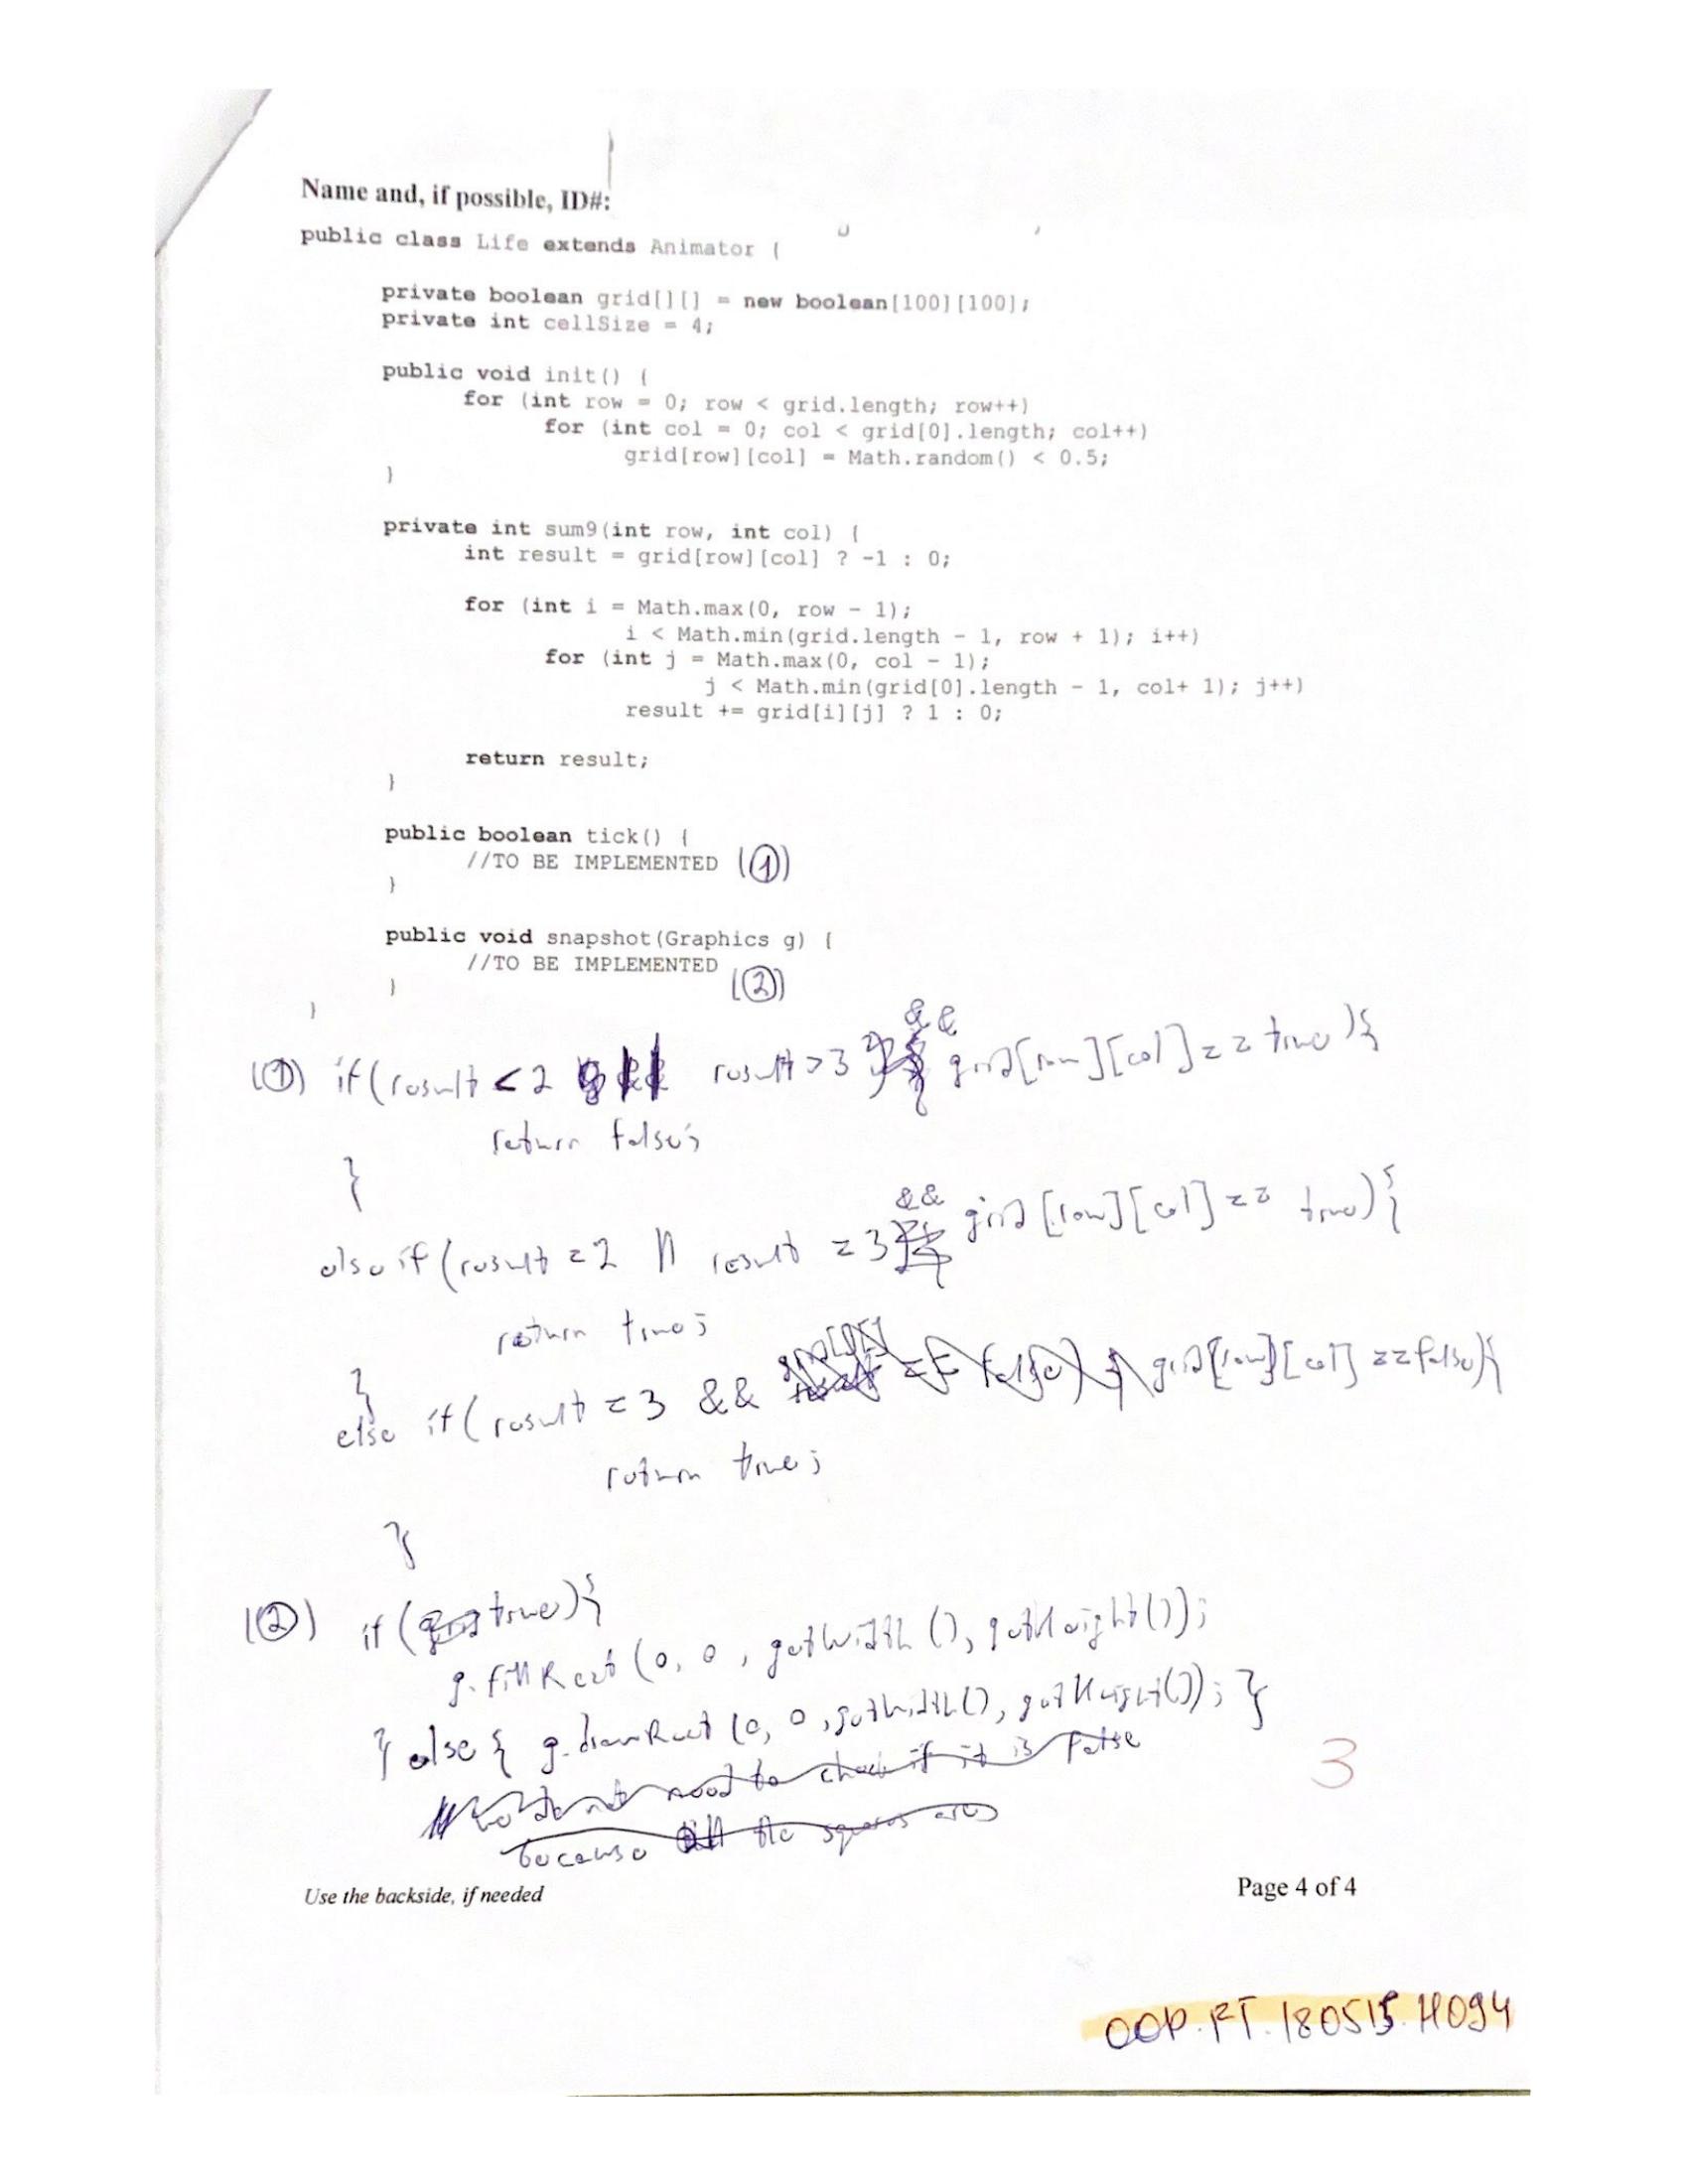 Name and, if possible, ID#:
public class Life extends Animator {
private boolean grid[][] = new boolean[100][100];
private int cellSize = 4;
public void init() {
for (int row = 0; row < grid.length; row++)
for (int col = 0; col < grid[0].length; col++)
grid[row][col] = Math.random() < 0.5;
}
private int sum9(int row, int col) {
int result = grid[row][col] ? -1 : 0;
for (int i = Math.max(0, row - 1);
i < Math.min(grid.length - 1, row + 1); i++)
for (int j = Math.max(0, col - 1);
j < Math.min(grid[0].length - 1, col+ 1); j++)
result += grid[i][j] ? 1 : 0;
return result;
}
public boolean tick() {
//TO BE IMPLEMENTED (1)
}
public void snapshot(Graphics g) {
//TO BE IMPLEMENTED (2)
}
}
(1) if (result < 2 || result > 3 && grid[row][col] == true ){
return false;
}
else if (result = 2 || result = 3 && grid [row][col] == true){
return true;
}
else if ( result = 3 && grid[row][col] == false){
return true;
}
(2) if (true){
g.fillRect (0, 0, getWidth (), getHeight());
} else { g.drawRect (0, 0, getWidth(), getHeight()); }
we do not need to check if it is false
because all the squares are
3
Use the backside, if needed
Page 4 of 4
OOP.FT.180515.H094